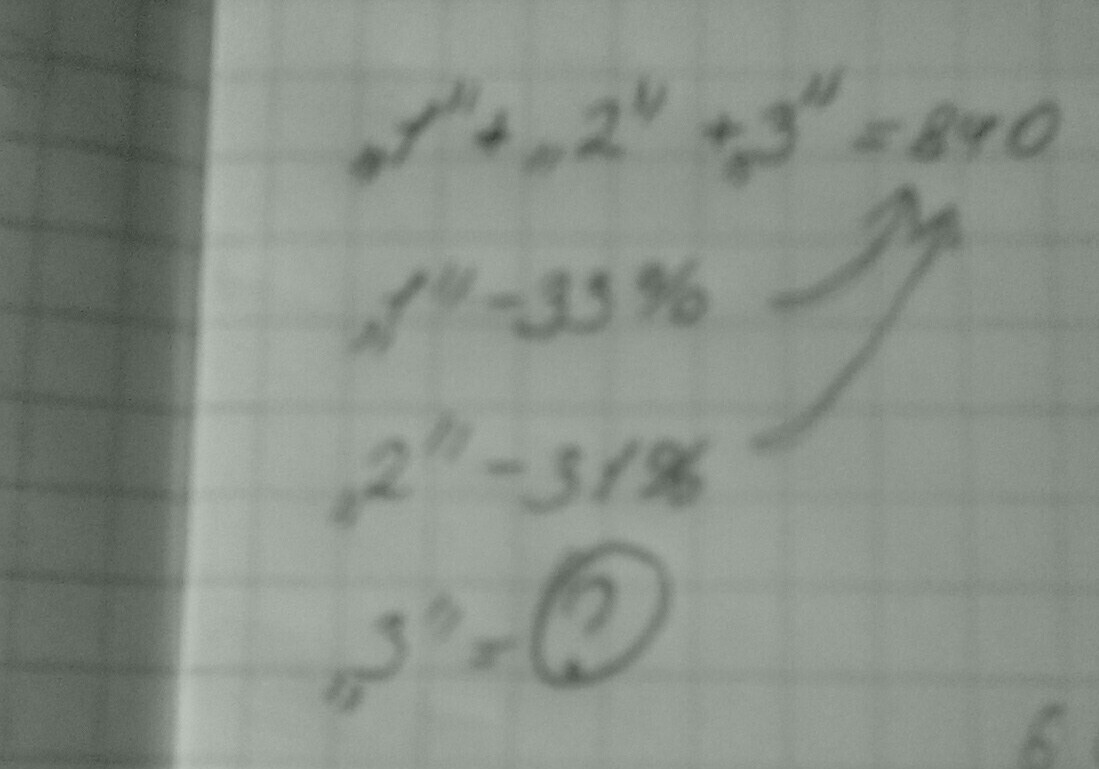 „1" + „2" + „3" = 840
„1" - 33%
„2" - 31%
„3" = ?
6